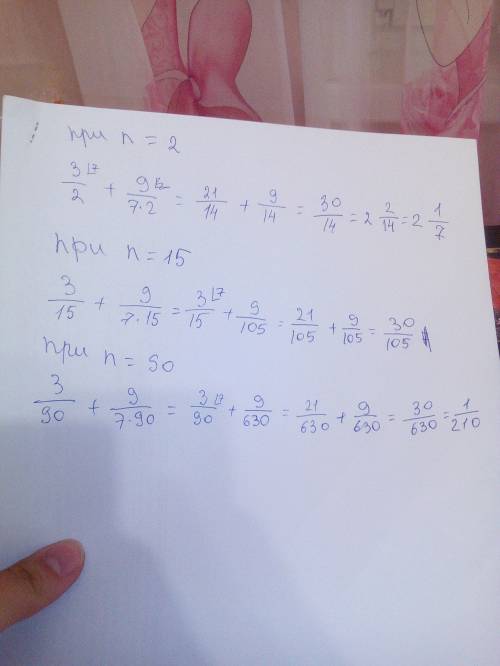 при n = 2
3⌊7/2 + 9⌊2/7·2 = 21/14 + 9/14 = 30/14 = 2 2/14 = 2 1/7
при n = 15
3/15 + 9/7·15 = 3⌊7/15 + 9/105 = 21/105 + 9/105 = 30/105
при n = 90
3/90 + 9/7·90 = 3⌊7/90 + 9/630 = 21/630 + 9/630 = 30/630 = 1/210